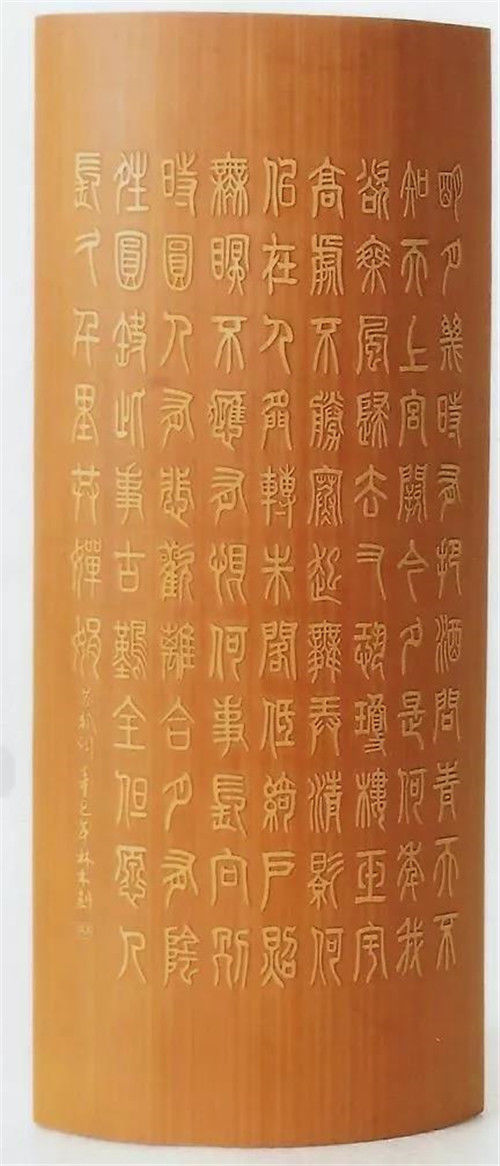 明月幾時有把酒問青天不
知天上宮闕今夕是何年我
欲乘風歸去又恐瓊樓玉宇
高處不勝寒起舞弄清影何
佀在人間轉朱閣低綺戶照
無眠不應有恨何事長向別
時圓人有悲歡離合月有陰
晴圓缺此事古難全但願人
長久千里共嬋娟